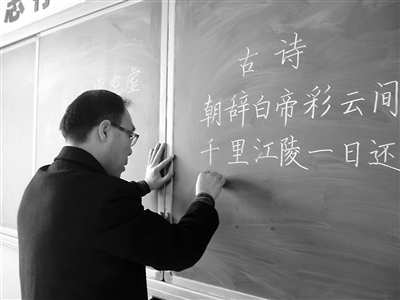 古诗
朝辞白帝彩云间
千里江陵一日还